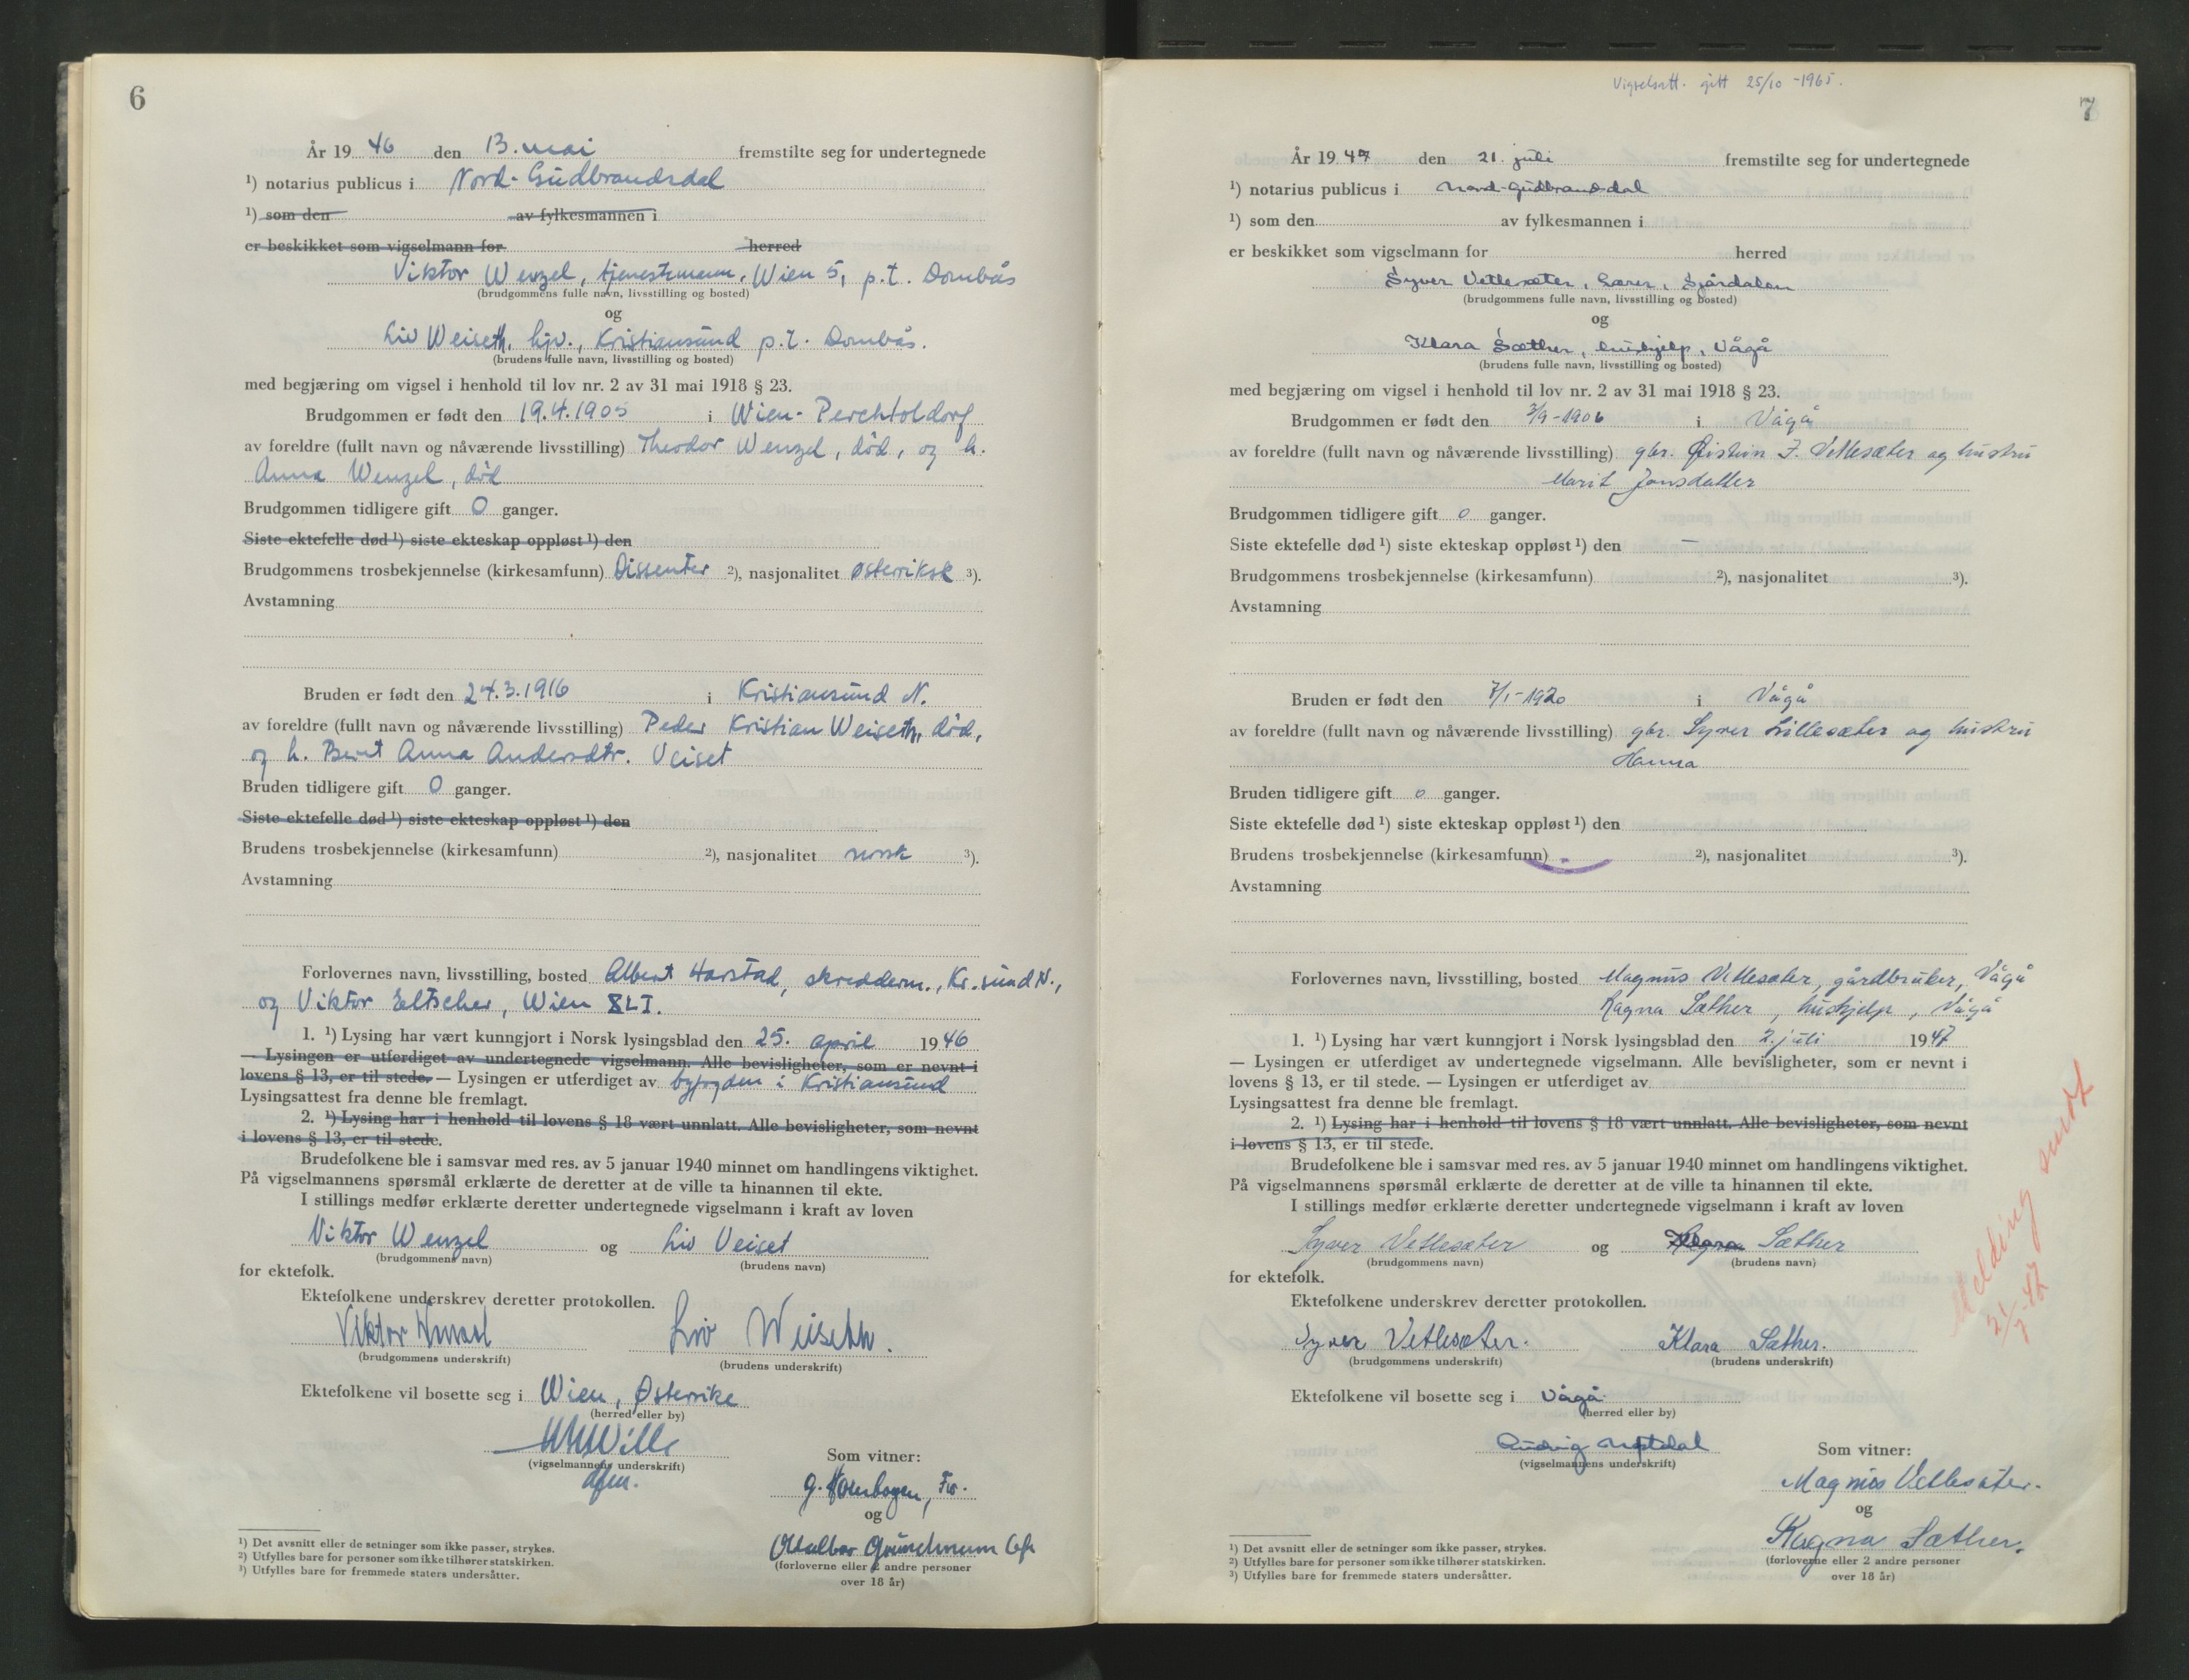 6
År 19 46 den 13. mai fremstilte seg for undertegnede
¹) notarius publicus i Nord-Gudbrandsdal
¹) som den av fylkesmannen i
er beskikket som vigselmann for herred
Viktor Wenzel, tjenestemann, Wien 5, p.t. Dombås
(brudgommens fulle navn, livsstilling og bosted)
og
Liv Weiseth, hjv., Kristiansund p.t. Dombås.
(brudens fulle navn, livsstilling og bosted)
med begjæring om vigsel i henhold til lov nr. 2 av 31 mai 1918 § 23.
Brudgommen er født den 19.4.1905 i Wien-Perchtoldorf
av foreldre (fullt navn og nåværende livsstilling) Theodor Wenzel, død, og h.
Anna Wenzel, død
Brudgommen tidligere gift 0 ganger.
Siste ektefelle død ¹) siste ekteskap oppløst ¹) den
Brudgommens trosbekjennelse (kirkesamfunn) Dissenter ²), nasjonalitet østerriksk ³).
Avstamning
Bruden er født den 24.3.1916 i Kristiansund N.
av foreldre (fullt navn og nåværende livsstilling) Peder Kristian Weiseth, død,
og h. Berit Anna Andersdtr. Veiset
Bruden tidligere gift 0 ganger.
Siste ektefelle død ¹) siste ekteskap oppløst ¹) den
Brudens trosbekjennelse (kirkesamfunn) ²), nasjonalitet norsk ³).
Avstamning
Forlovernes navn, livsstilling, bosted Albert Harstad, skredderm., Kr.sund N.,
og Viktor Eltscher, Wien XLI.
1. ¹) Lysing har vært kunngjort i Norsk lysingsblad den 25. april 19 46
— Lysingen er utferdiget av undertegnede vigselmann. Alle bevisligheter, som er nevnt i
lovens § 13, er til stede. — Lysingen er utferdiget av byfogden i Kristiansund
Lysingsattest fra denne ble fremlagt.
2. ¹) Lysing har i henhold til lovens § 18 vært unnlatt. Alle bevisligheter, som nevnt
i lovens § 13, er til stede.
Brudefolkene ble i samsvar med res. av 5 januar 1940 minnet om handlingens viktighet.
På vigselmannens spørsmål erklærte de deretter at de ville ta hinannen til ekte.
I stillings medfør erklærte deretter undertegnede vigselmann i kraft av loven
Viktor Wenzel og Liv Veiset
(brudgommens navn) (brudens navn)
for ektefolk.
Ektefolkene underskrev deretter protokollen.
Viktor Wenzel Liv Weiseth.
(brudgommens underskrift) (brudens underskrift)
Ektefolkene vil bosette seg i Wien, Østerrike
(herred eller by)
(vigselmannens underskrift)
Som vitner:
og
(forloverne eller 2 andre personer
over 18 år)
¹) Det avsnitt eller de setninger som ikke passer, strykes.
²) Utfylles bare for personer som ikke tilhører statskirken.
³) Utfylles bare for fremmede staters undersåtter.
Vigselsatt. gitt 25/10 -1965.
7
År 19 47 den 21. juli fremstilte seg for undertegnede
¹) notarius publicus i Nord-Gudbrandsdal
¹) som den av fylkesmannen i
er beskikket som vigselmann for herred
Syver Vetlesæter, lærer, Sjårdalen
(brudgommens fulle navn, livsstilling og bosted)
og
Klara Sæther, hushjelp, Vågå
(brudens fulle navn, livsstilling og bosted)
med begjæring om vigsel i henhold til lov nr. 2 av 31 mai 1918 § 23.
Brudgommen er født den 3/9-1906 i Vågå
av foreldre (fullt navn og nåværende livsstilling) gbr. Øistein J. Vetlesæter og hustru
Marit Jonsdatter
Brudgommen tidligere gift 0 ganger.
Siste ektefelle død ¹) siste ekteskap oppløst ¹) den —
Brudgommens trosbekjennelse (kirkesamfunn) ²), nasjonalitet ³).
Avstamning
Bruden er født den 7/1-1920 i Vågå
av foreldre (fullt navn og nåværende livsstilling) gbr. Syver Lillesæter og hustru
Hanna
Bruden tidligere gift 0 ganger.
Siste ektefelle død ¹) siste ekteskap oppløst ¹) den
Brudens trosbekjennelse (kirkesamfunn) ²), nasjonalitet ³).
Avstamning
Forlovernes navn, livsstilling, bosted Magnus Vetlesæter, gårdbruker, Vågå
Ragna Sæther, hushjelp, Vågå
1. ¹) Lysing har vært kunngjort i Norsk lysingsblad den 2. juli 19 47
— Lysingen er utferdiget av undertegnede vigselmann. Alle bevisligheter, som er nevnt i
lovens § 13, er til stede. — Lysingen er utferdiget av
Lysingsattest fra denne ble fremlagt.
2. ¹) Lysing har i henhold til lovens § 18 vært unnlatt. Alle bevisligheter, som nevnt
i lovens § 13, er til stede.
Brudefolkene ble i samsvar med res. av 5 januar 1940 minnet om handlingens viktighet.
På vigselmannens spørsmål erklærte de deretter at de ville ta hinannen til ekte.
I stillings medfør erklærte deretter undertegnede vigselmann i kraft av loven
Syver Vetlesæter og Sæther
(brudgommens navn) (brudens navn)
for ektefolk.
Ektefolkene underskrev deretter protokollen.
Syver Vetlesæter. Klara Sæther.
(brudgommens underskrift) (brudens underskrift)
Ektefolkene vil bosette seg i Vågå
(herred eller by)
(vigselmannens underskrift)
Som vitner:
Magnus Vetlesæter.
og
Ragna Sæther.
(forloverne eller 2 andre personer
over 18 år)
¹) Det avsnitt eller de setninger som ikke passer, strykes.
²) Utfylles bare for personer som ikke tilhører statskirken.
³) Utfylles bare for fremmede staters undersåtter.
Melding sendt
21/7-47